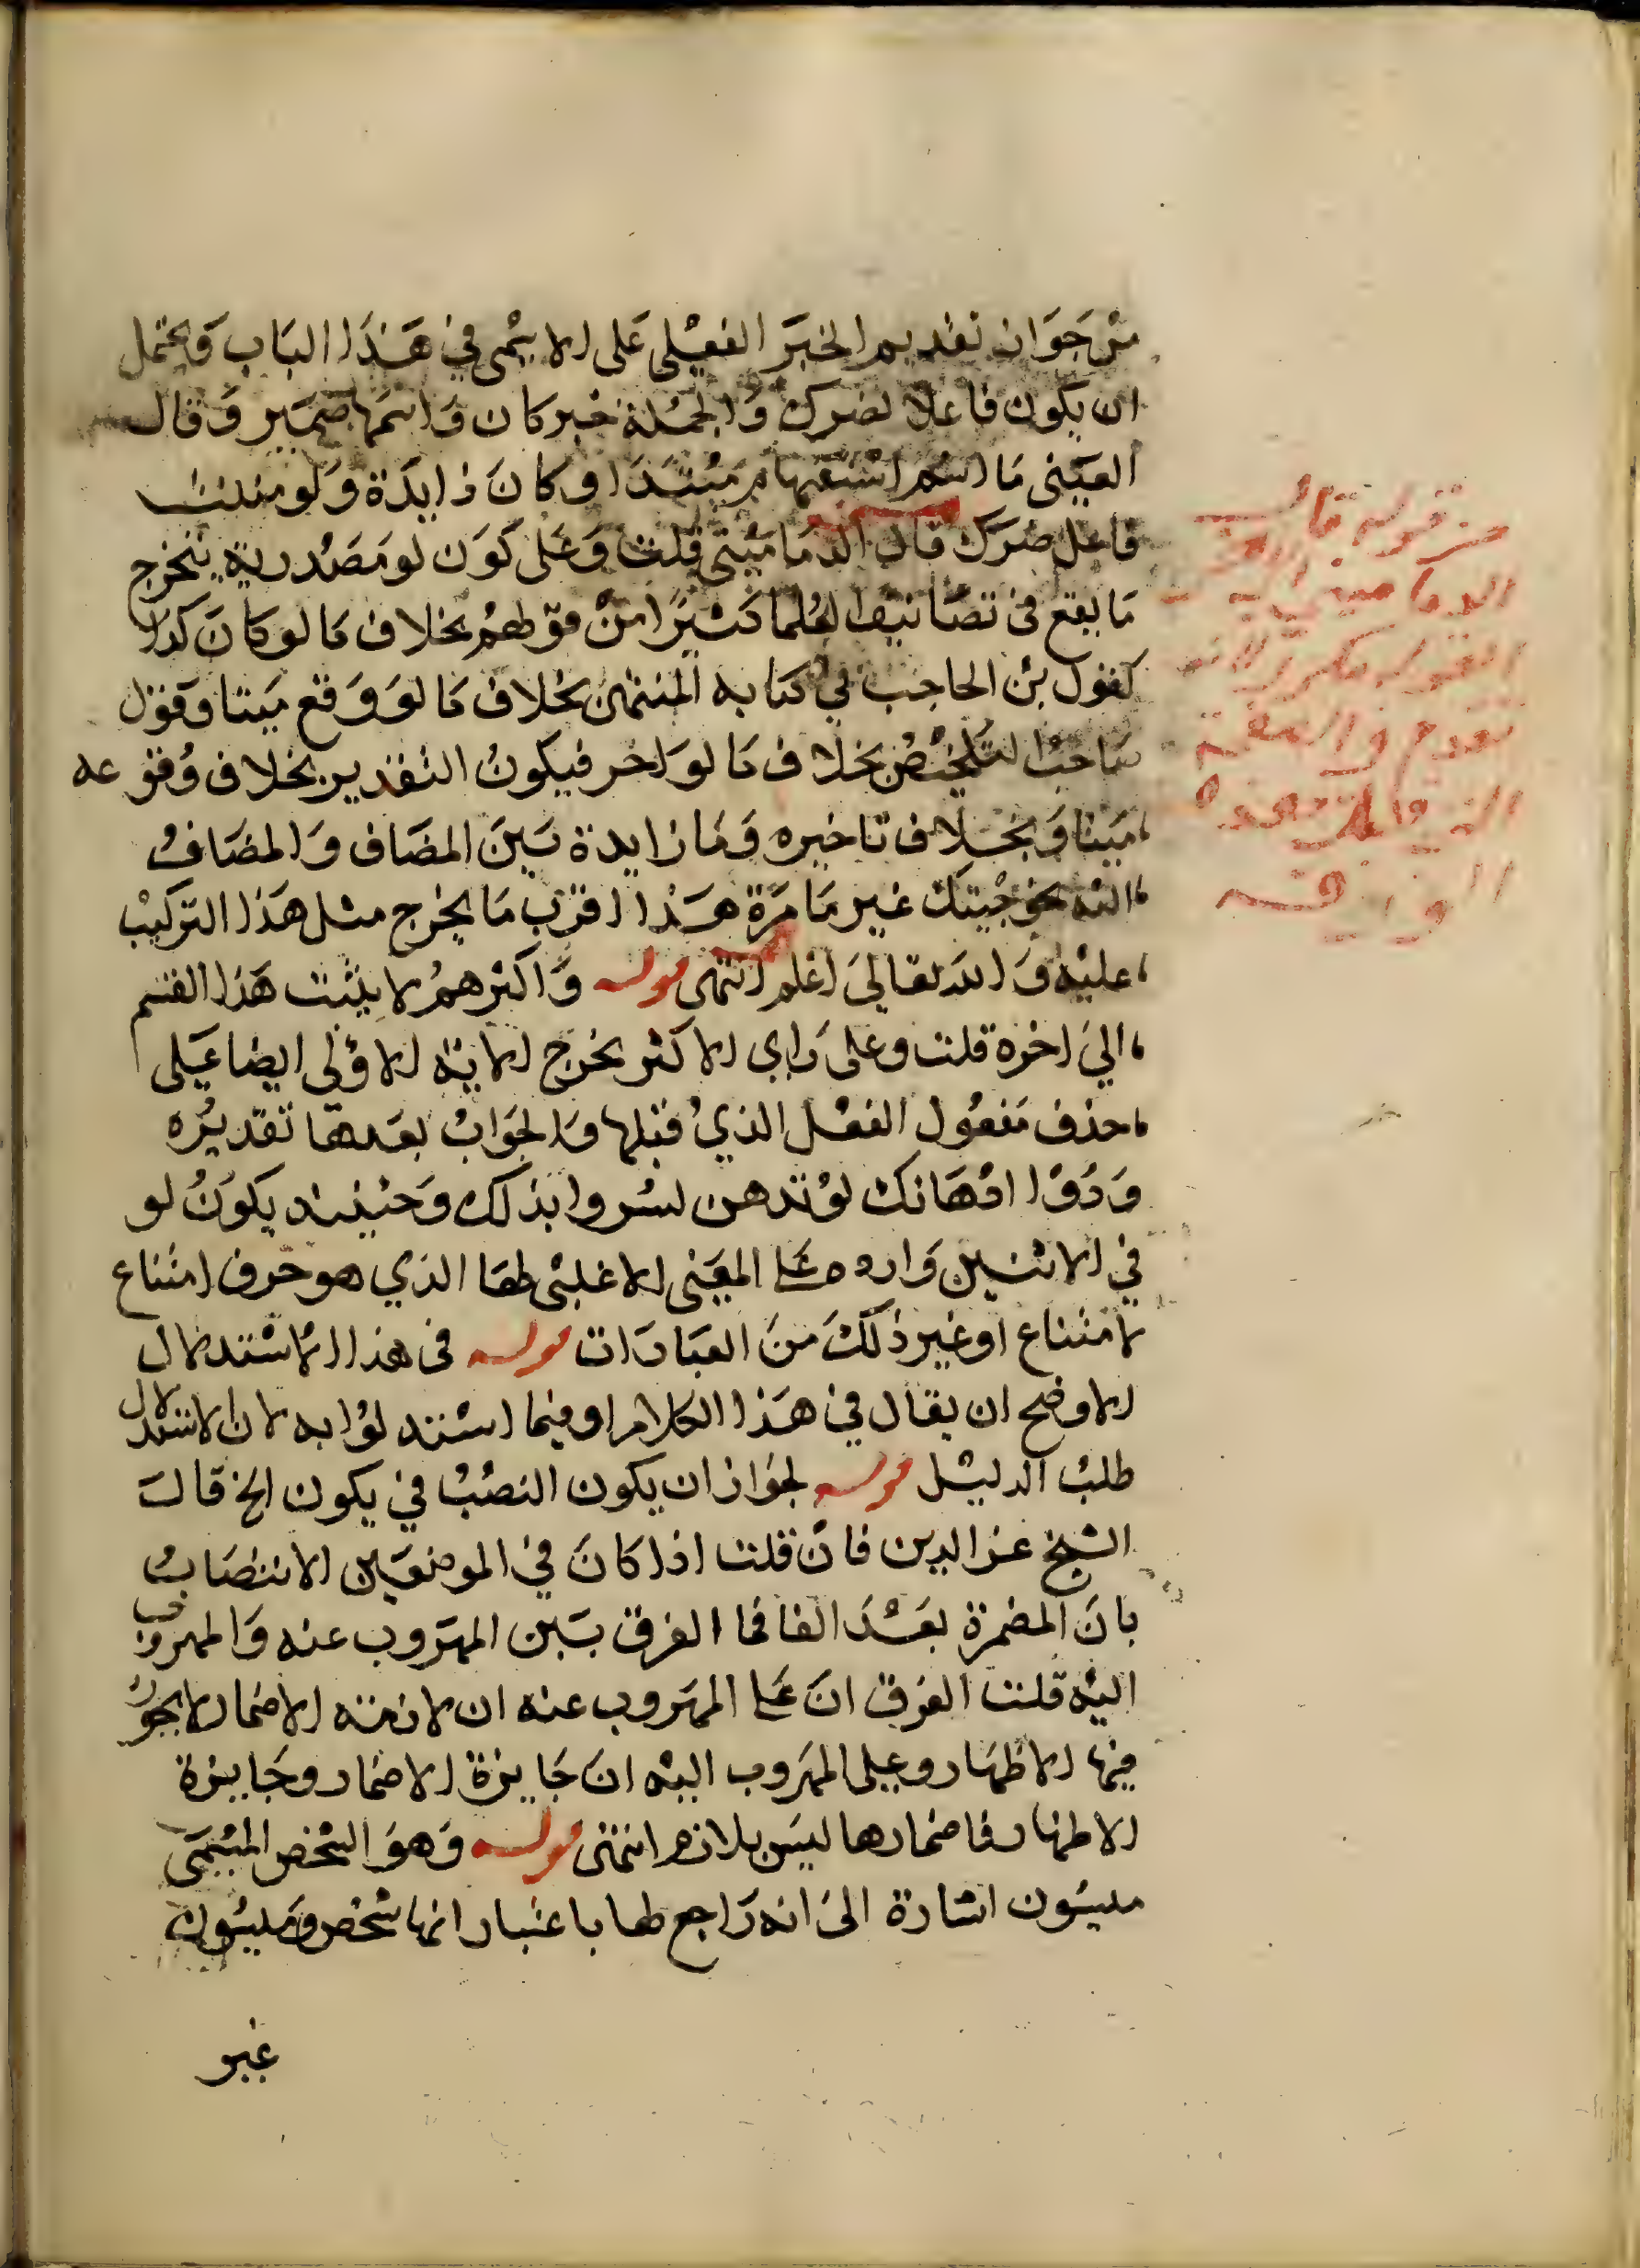 من جواز تقديم الخبر الفعلي على الاسم في هذا الباب ويحتمل
ان يكون فاعلا لضرك والجملة خبر كان واسمها ضمير وقال
العيني ما اسم استفهام مبتدا وكان زايدة ولو مننت
فاعل ضرك قال الدماميني قلت وعلى كون لو مصدرية يتخرج
ما يقع في تصانيف العلما كثيرا من قولهم بخلاف ما لو كان كذا
كقول بن الحاجب في كتابه المنتهى بخلاف ما لو وقع مبينا وقول
صاحب التلخيص بخلاف ما لو اخر فيكون التقدير بخلاف وقوعه
مبينا وبخلاف تاخيره وما زايدة بين المضاف والمضاف
اليه نحو جيتك غير ما مرة هذا اقرب ما يخرج مثل هذا التركيب
عليه والله تعالى اعلم انتهى قوله واكثرهم لا يثبت هذا القسم
الى اخره قلت وعلى راي الاكثر يخرج الاية الاولى ايضا على
حذف مفعول الفعل الذي قبلها والجواب بعدها تقديره
ودوا ادهانك لو تدهن لسروا بذلك وحينيذ يكون لو
في الاثنين وارده على المعنى الاغلبي لها الذي هو حرف امتناع
لامتناع او غير ذلك من العبارات قوله في هذا الاستدلال
الاوضح ان يقال في هذا الكلام او فيما استدلوا به لان الاستدلال
طلب الدليل قوله لجواز ان يكون النصب في يكون الخ قالت
الشيخ عز الدين فان قلت اذا كان في الموضعين الانتصاب
بان المضمرة بعد الفا فما الفرق بين المهروب عنه والمهروب
اليه قلت الفرق ان على المهروب عنه ان لازمة الاضمار لا يجوز
فيها الاظهار وعلى المهروب اليه ان جايزة الاضمار وجايزة
الاظهار فاضمارها ليس بلازم انتهى قوله وهو الشخص المسمى
ميسون اشارة الى انه راجع لها باعتبار انها شخص وميسون
غير
من قوله قال
الدماميني الى
القول مكرر لانه
تقدم في الصفحة
التي قبل هذه
الورقة